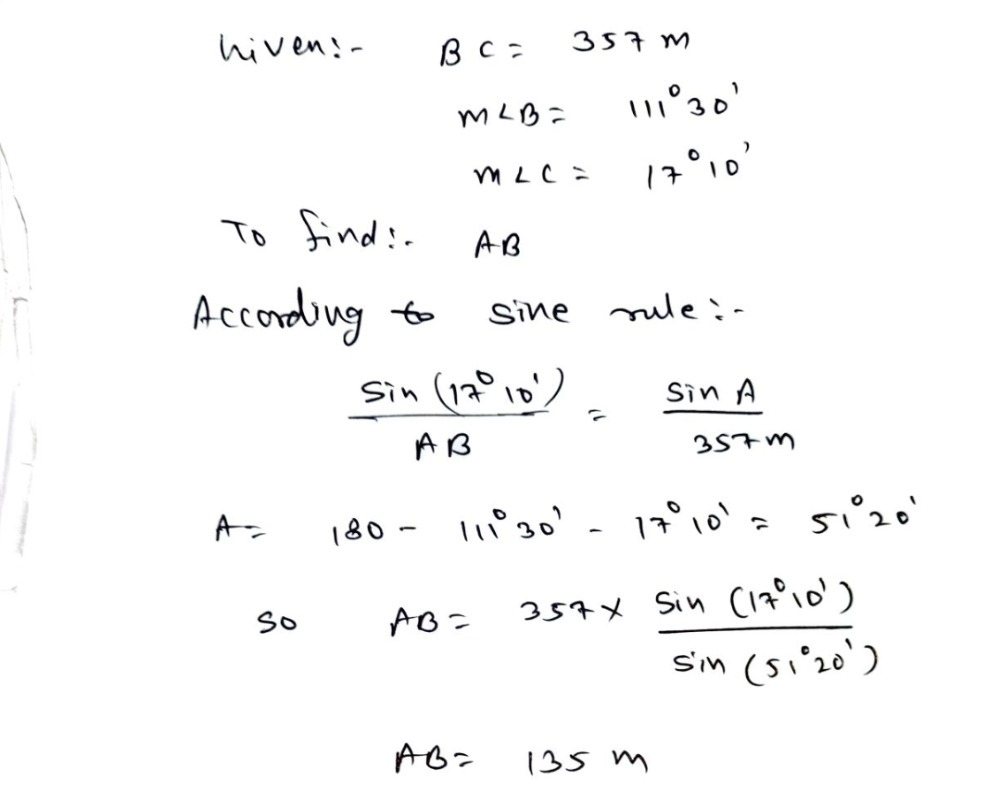 Given:- BC = 357 m
m∠B = 111°30'
m∠C = 17°10'
To find:- AB
According to sine rule:-
Sin (17°10') / AB = Sin A / 357m
A = 180 - 111°30' - 17°10' = 51°20'
so AB = 357 x Sin (17°10') / Sin (51°20')
AB = 135 m